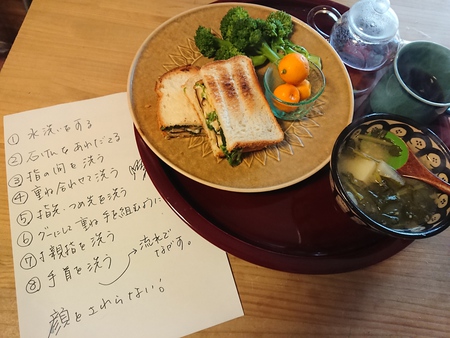 ① 水洗いをする
② 石けんをあわだてる
③ 指の間を洗う
④ 重ね合わせて洗う
⑤ 指先・つめ先を洗う
⑥ グーにして重ね手を組むように
⑦ 親指を洗う
⑧ 手首を洗う
流水で
ながす。
顔をさわらない!